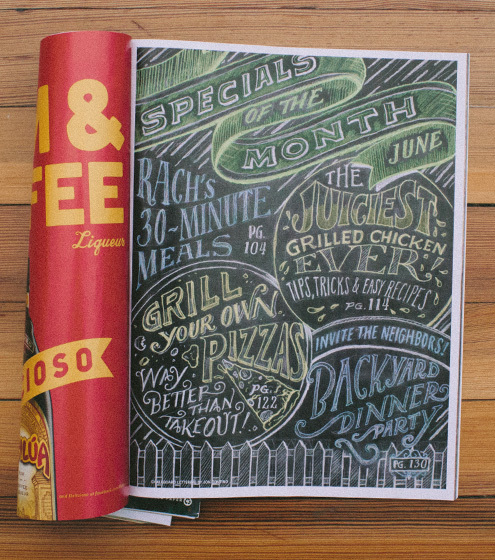 M &
FEE
Liqueur
IOSO
LÚA
SPECIALS
OF THE
MONTH
JUNE
RACH'S
30-MINUTE
MEALS
PG.
104
THE
JUICIEST
GRILLED CHICKEN
EVER!
TIPS, TRICKS & EASY RECIPES
PG. 114
GRILL
YOUR OWN
PIZZAS
WAY
BETTER
THAN
TAKEOUT!
PG.
122
INVITE THE NEIGHBORS!
BACKYARD
DINNER
PARTY
PG. 130